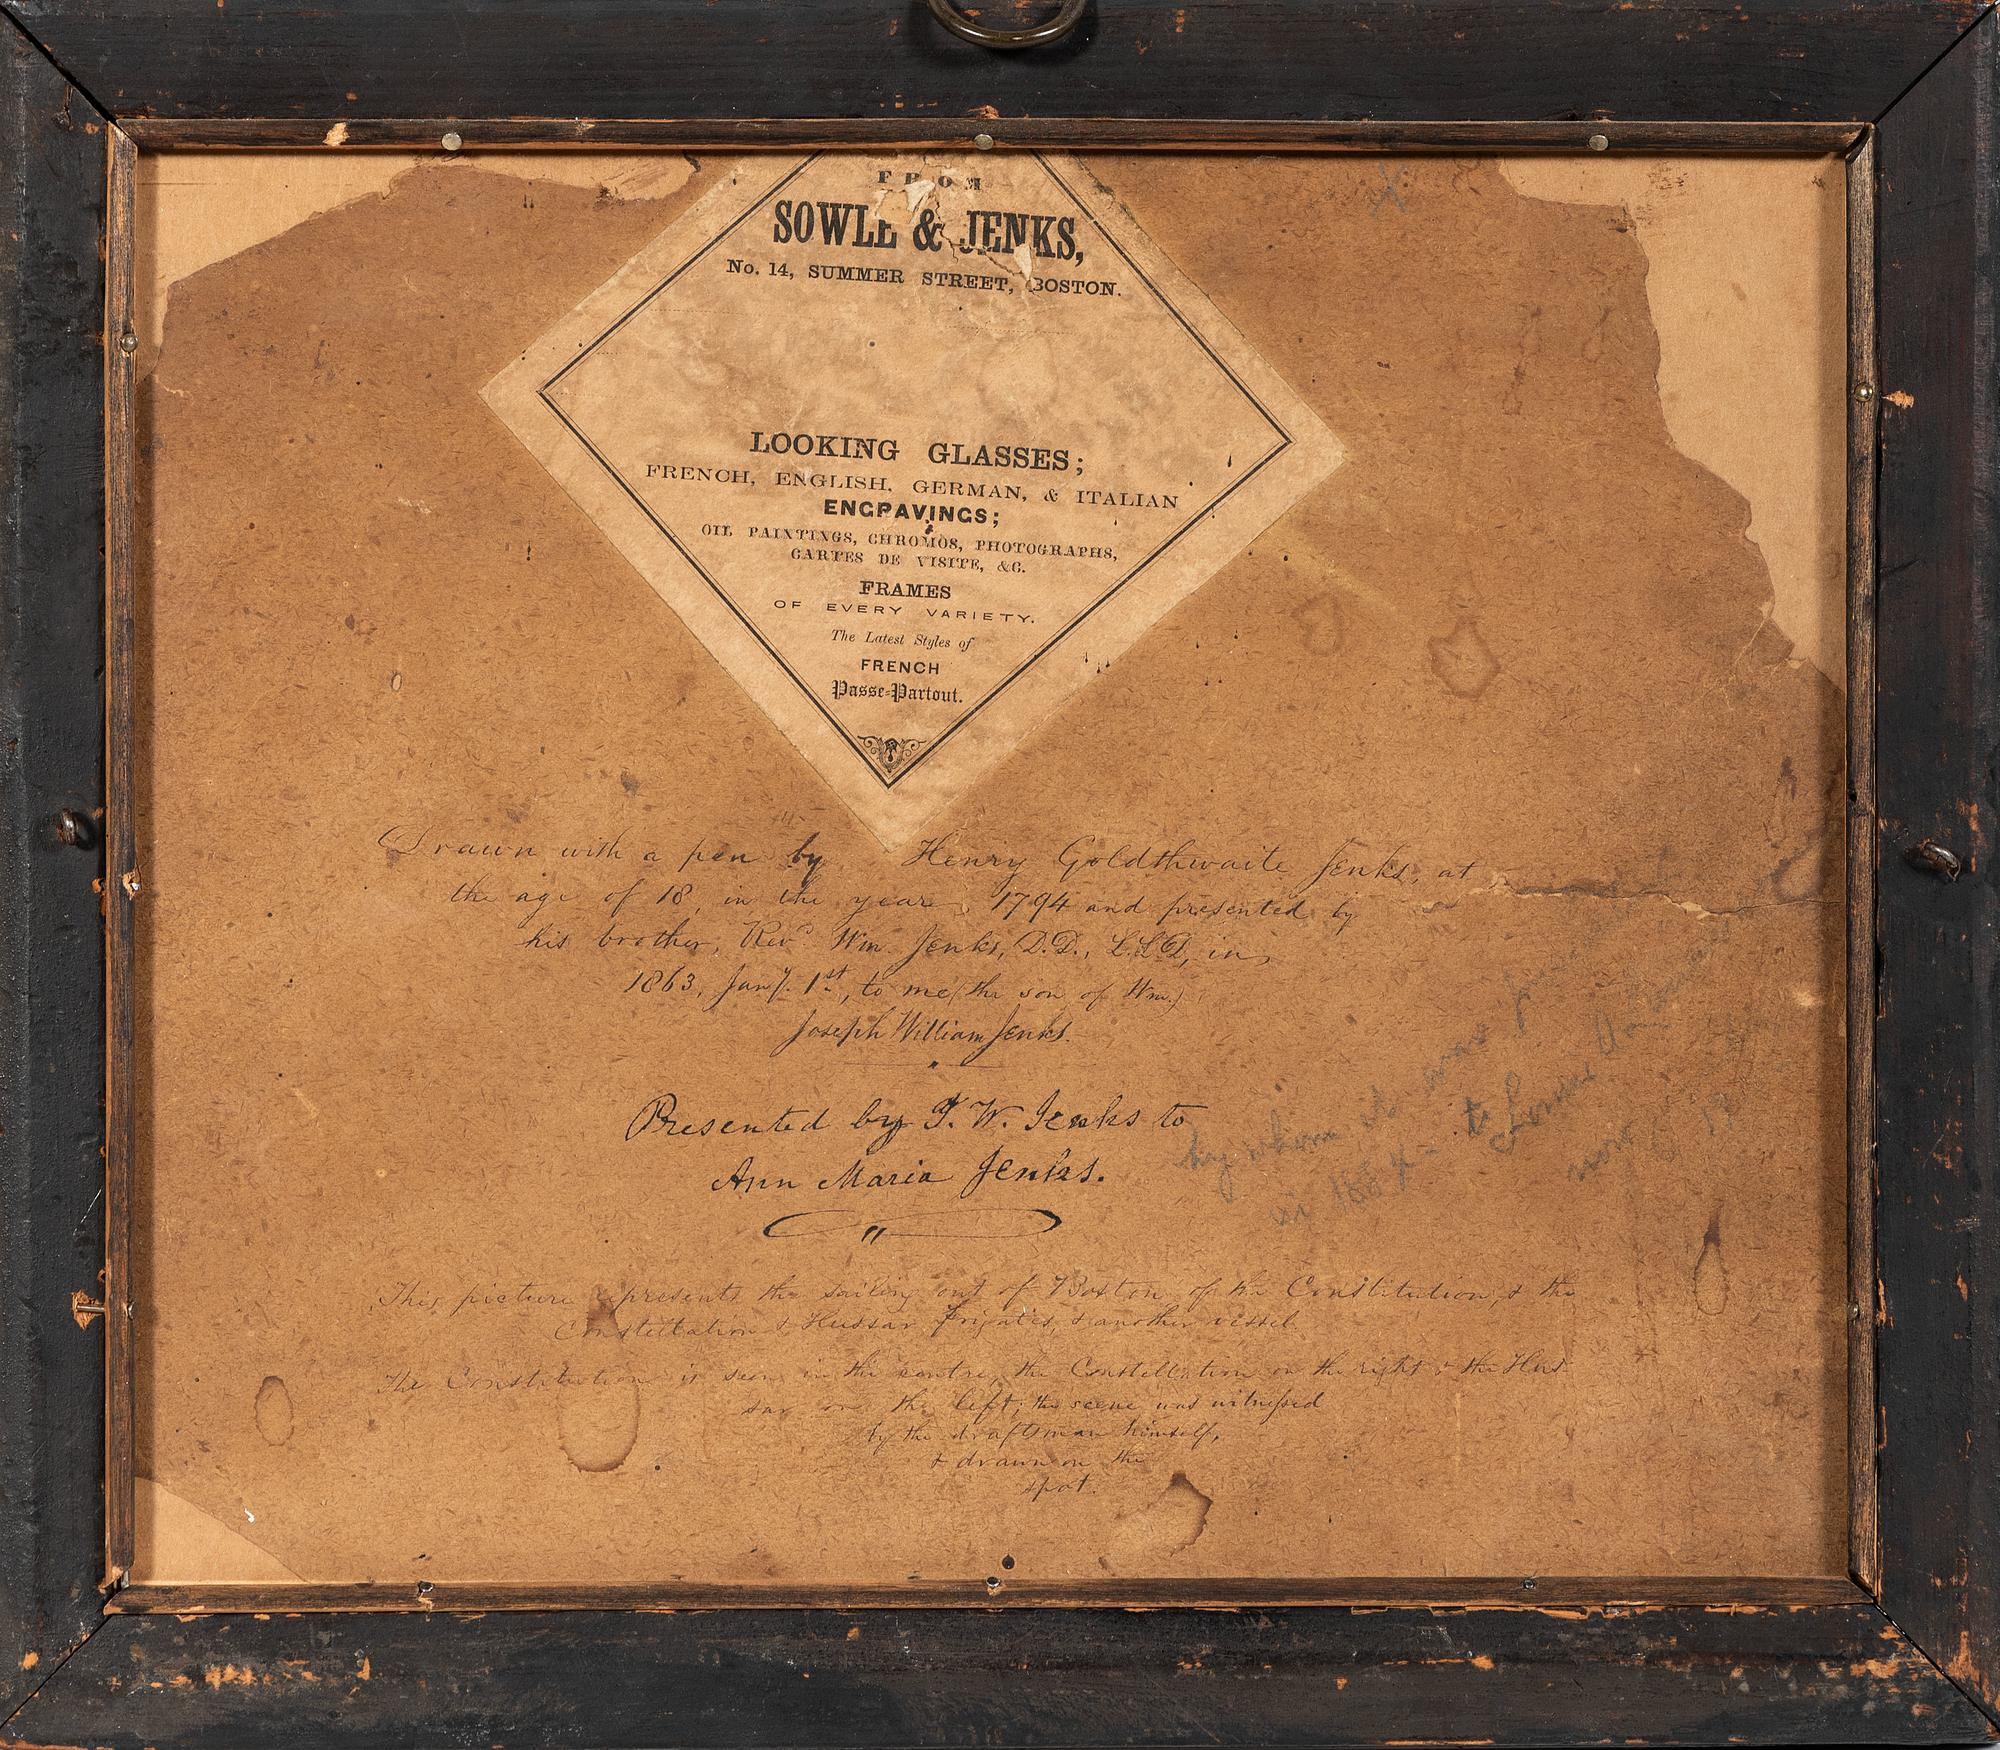 FROM
SOWLE & JENKS,
No. 14, SUMMER STREET, BOSTON.
LOOKING GLASSES;
FRENCH, ENGLISH, GERMAN, & ITALIAN
ENGRAVINGS;
OIL PAINTINGS, CHROMOS, PHOTOGRAPHS,
CARTES DE VISITE, &C.
FRAMES
OF EVERY VARIETY.
The Latest Styles of
FRENCH
Passe-Partout.
Drawn with a pen by Henry Goldthwaite Jenks, at
the age of 18, in the year 1794 and presented by
his brother, Revd. Wm. Jenks, D.D., L.L.D, in
1863, Jany. 1st, to me (the son of Wm.)
Joseph William Jenks.
Presented by J. W. Jenks to
Ann Maria Jenks.
by whom it was
in 1884 - to Louisa
Nov 6 19
This picture represents the sailing out of Boston of the Constitution, & the
Constellation & Hussar frigates, & another vessel.
The Constitution is seen in the centre, the Constellation on the right & the Hus-
sar on the left; the scene was witnessed
by the draftsman himself,
& drawn on the
spot.